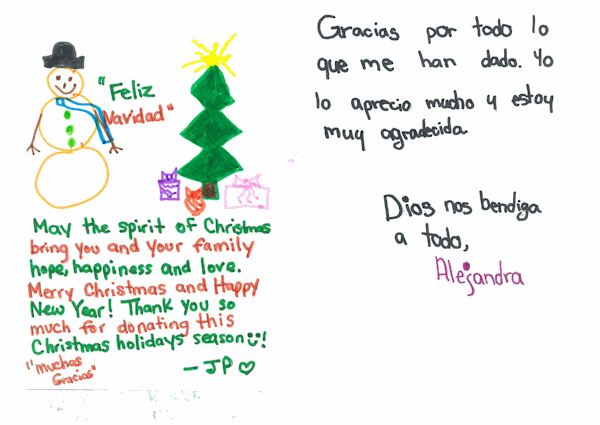 "Feliz
Navidad"
May the spirit of Christmas
bring you and your family
hope, happiness and love.
Merry Christmas and Happy
New Year! Thank you so
much for donating this
Christmas holidays season!
"Muchas
Gracias"
- JP
Gracias por todo lo
que me han dado. Yo
lo aprecio mucho y estoy
muy agradecida.
Dios nos bendiga
a todo,
Alejandra